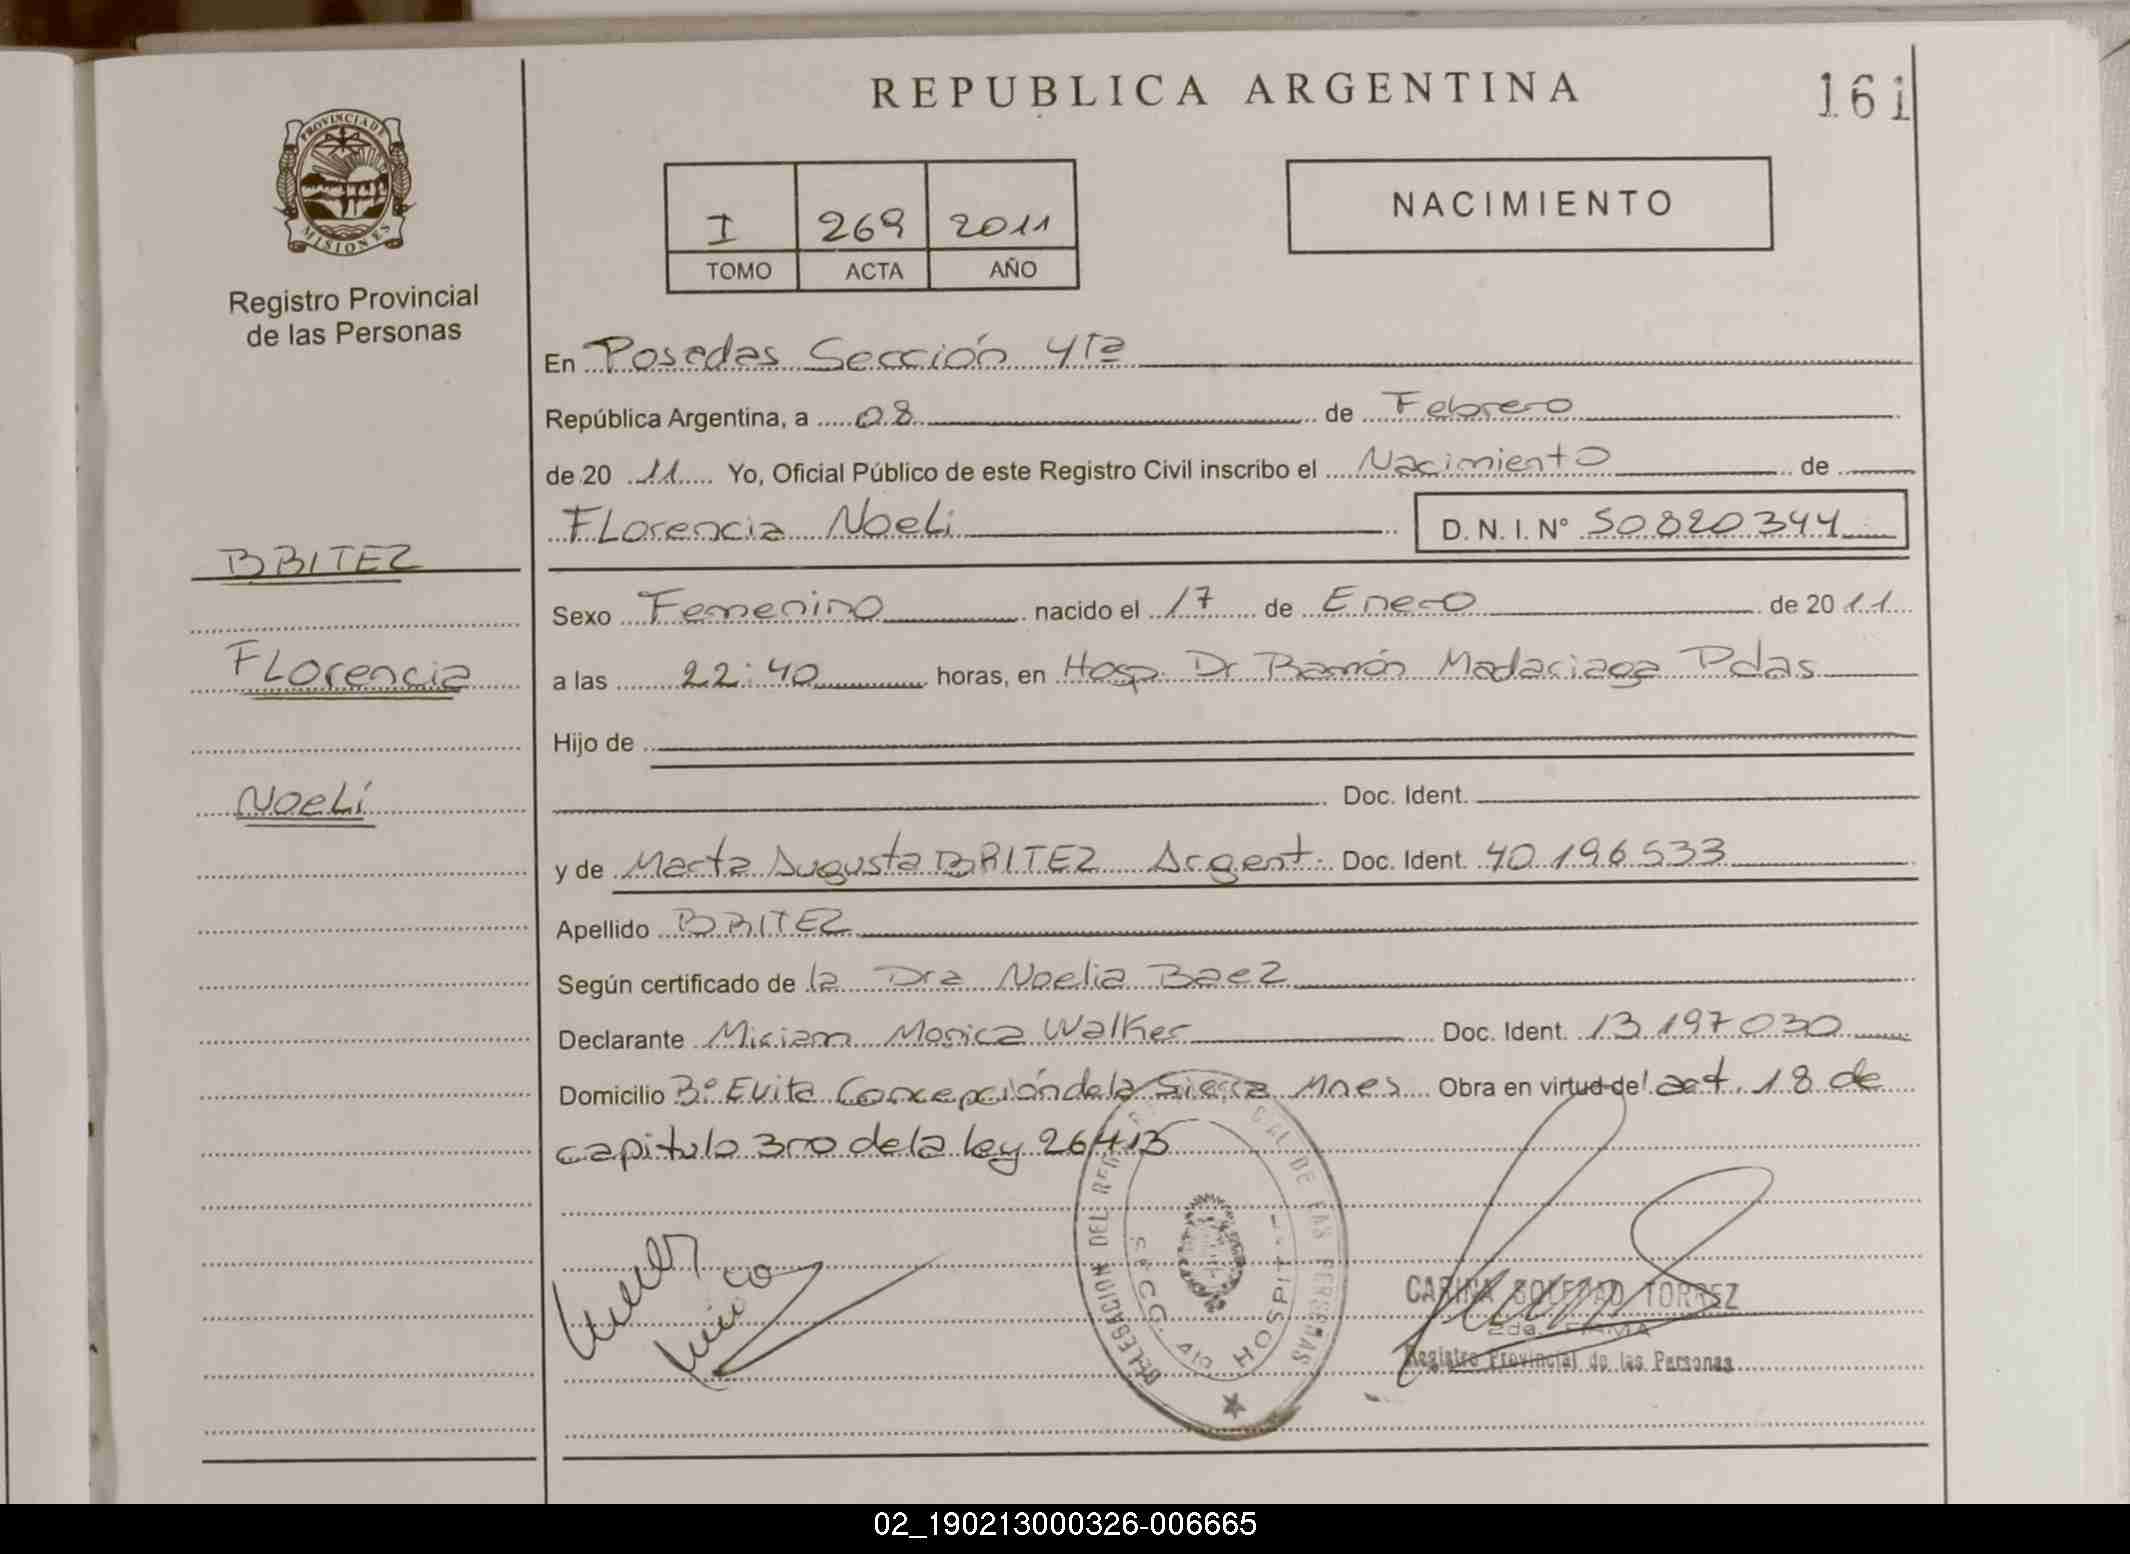 REPUBLICA ARGENTINA
161
PROVINCIA DE
MISIONES
Registro Provincial
de las Personas
I 269 2011
TOMO ACTA AÑO
NACIMIENTO
En Posadas Sección 4ta
República Argentina, a 08 de Febrero
de 20 11 Yo, Oficial Público de este Registro Civil inscribo el Nacimiento de
Florencia Noeli D. N. I. Nº 50820344
BRITEZ
Sexo Femenino nacido el 17 de Enero de 20 11
Florencia
a las 22:40 horas, en Hosp. Dr Ramón Madariaga Pdas
Hijo de
Doc. Ident.
Noelí
y de Marta Augusta BRITEZ Argent. Doc. Ident. 40.196.533
Apellido BRITEZ
Según certificado de la Dra Noelia Baez
Declarante Miriam Monica Walker Doc. Ident. 13.197.030
Domicilio Bº Evita Concepción de la Sierra Mnes Obra en virtud del art. 18 de
capitulo 3ro de la ley 26413
DELEGACION DEL DE LAS PERSONAS
SECC. 4ta HOSPITAL
CARINA SOLEDAD TORREZ
2da. FIRMA
Registro Provincial de las Personas
02_190213000326-006665